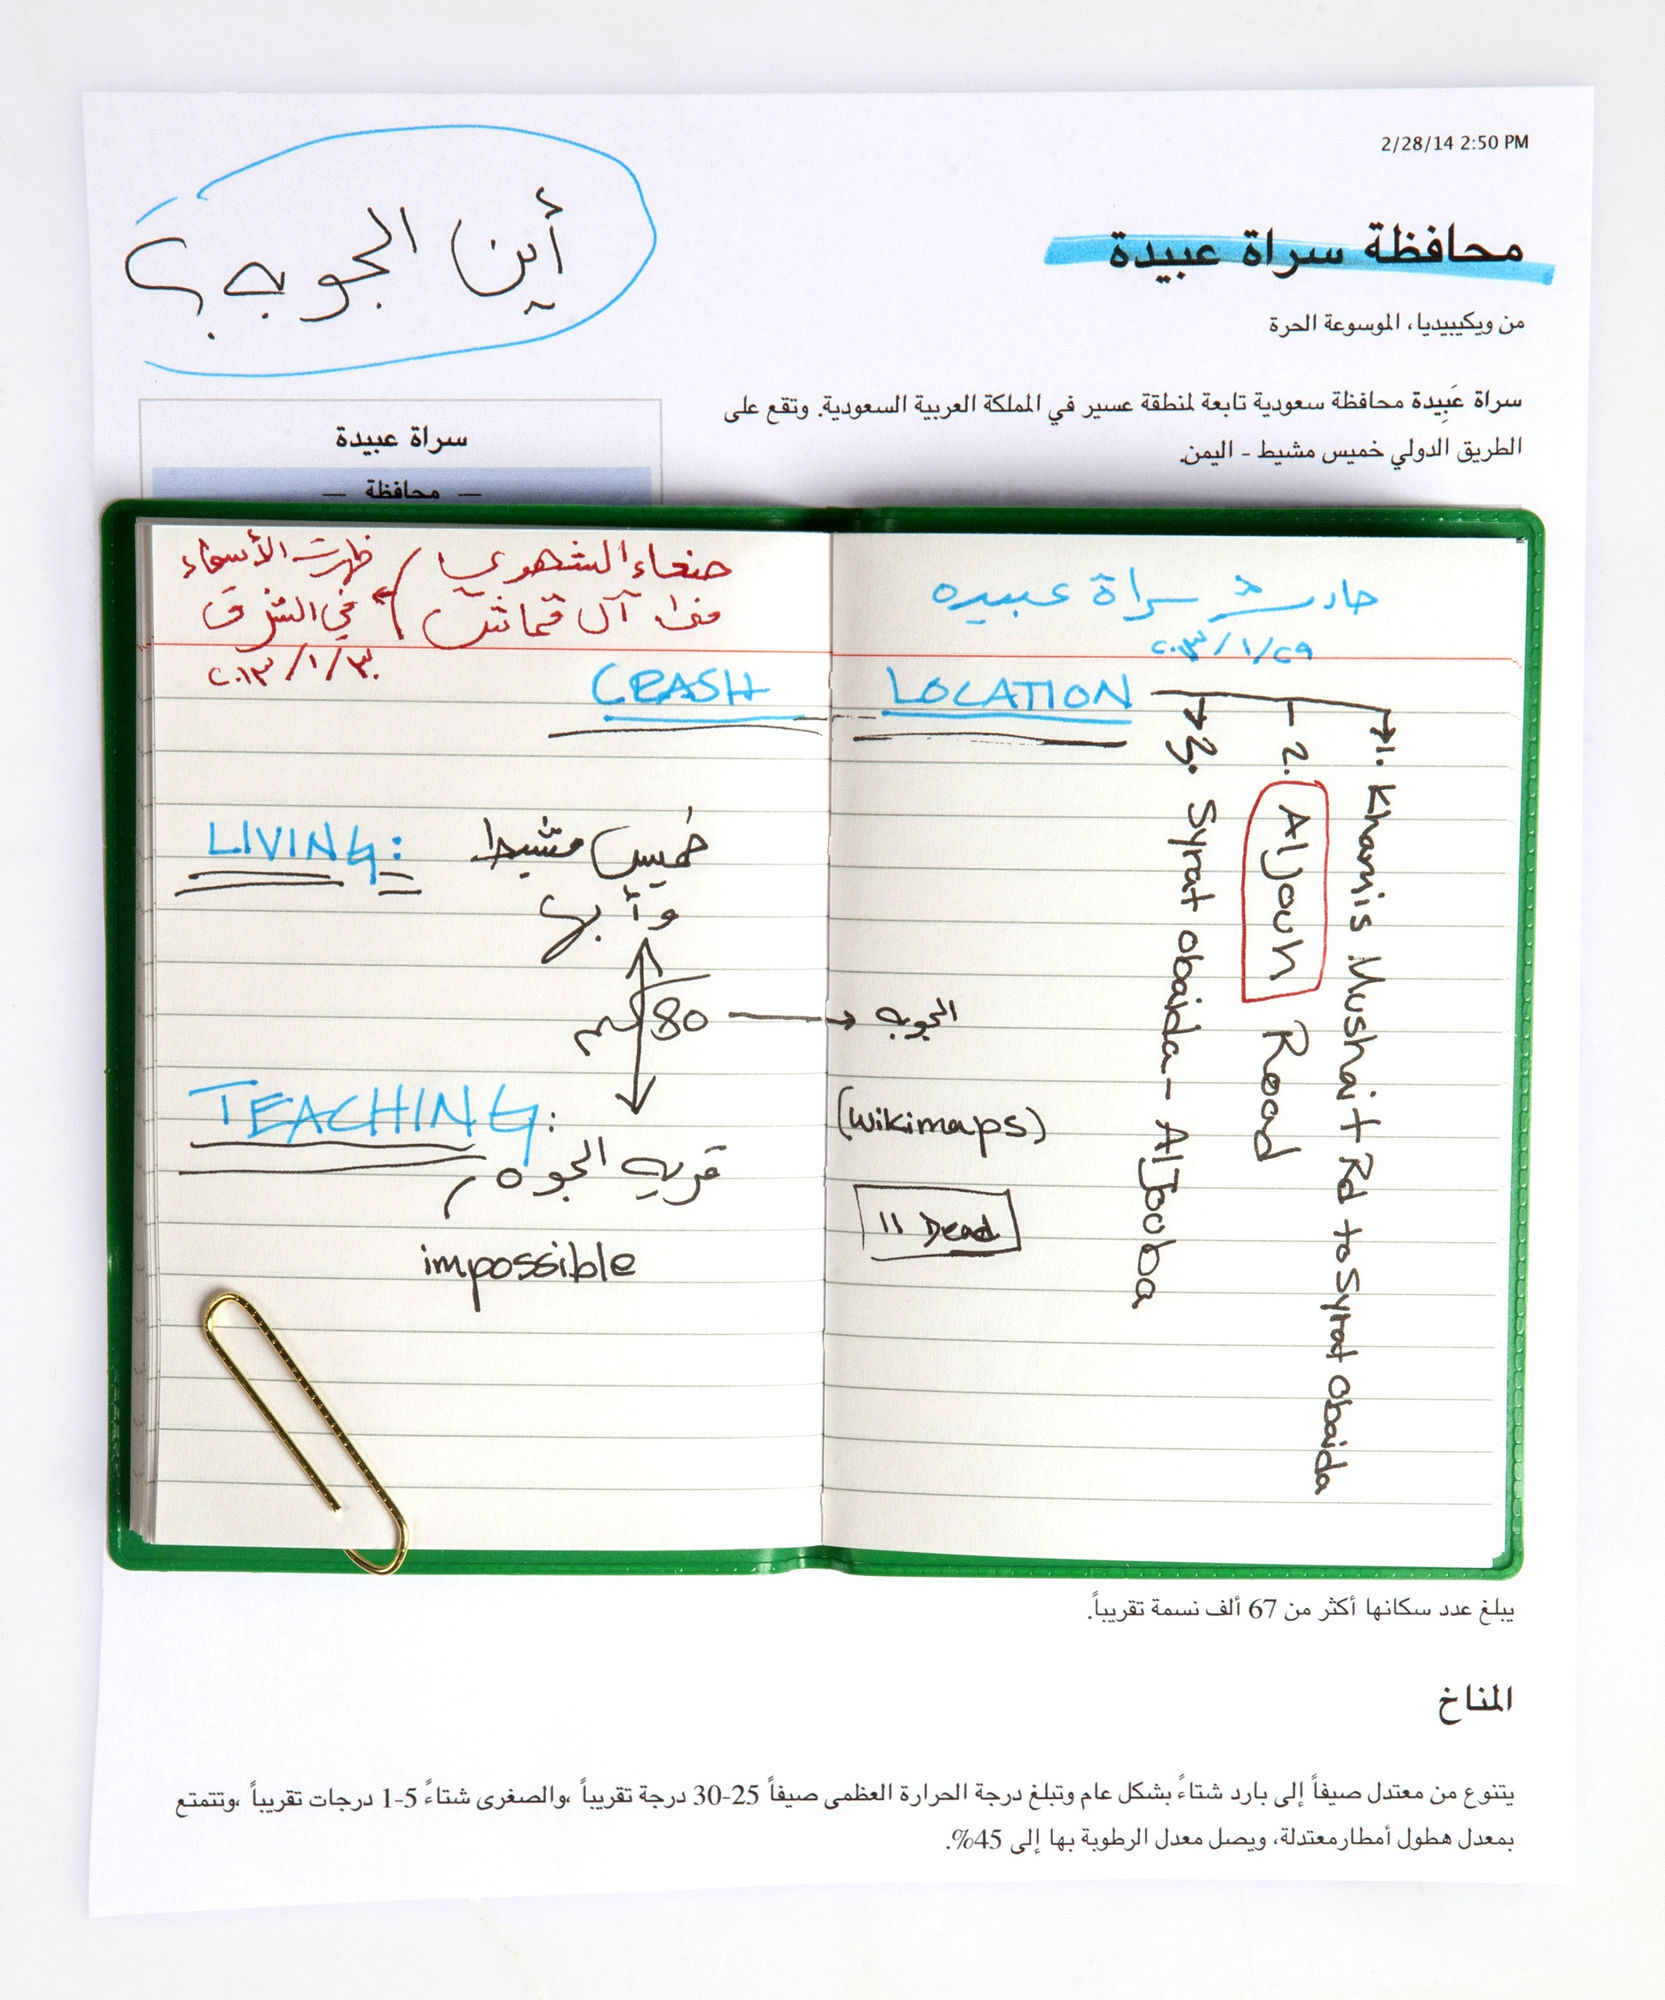 2/28/14 2:50 PM
محافظة سراة عبيدة
أين الجوبه؟
من ويكيبيديا، الموسوعة الحرة
سراة عَبِيدة محافظة سعودية تابعة لمنطقة عسير في المملكة العربية السعودية. وتقع على
الطريق الدولي خميس مشيط - اليمن.
سراة عبيدة
— محافظة —
حادث سراة عبيده
٢٠١٣/١/٢٩
LOCATION
1. Khamis Mushait Rd to Syrat obaida
2. AlJouh Road
3. Syrat obaida - AlJooba
الجوبه
(wikimaps)
11 Dead
صنعاء الشهري
آل قماش
ظهرت الأسماء
في الشرق
٢٠١٣/١/٣٠
CRASH
LIVING:
خميس مشيط
وأبها
80 كم
TEACHING:
قريه الجوه
impossible
يبلغ عدد سكانها أكثر من 67 ألف نسمة تقريباً.
المناخ
يتنوع من معتدل صيفاً إلى بارد شتاءً بشكل عام وتبلغ درجة الحرارة العظمى صيفاً 25-30 درجة تقريباً ،والصغرى شتاءً 5-1 درجات تقريباً ،وتتمتع
بمعدل هطول أمطارمعتدلة، ويصل معدل الرطوبة بها إلى 45%.